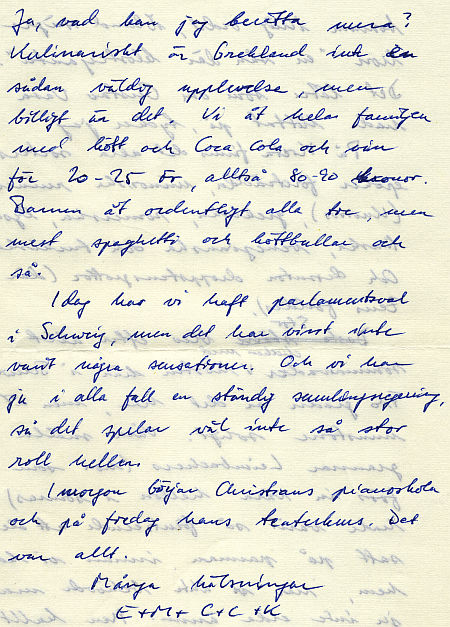 Ja, vad kan jag berätta mera?
Kulinariskt är Grekland inte en
sådan väldig upplevelse, men
billigt är det. Vi åt hela familjen
med kött och Coca Cola och vin
för 20-25 Fr, alltså 80-90 kronor.
Barnen åt ordentligt alla tre, men
mest spaghetti och köttbullar och
så.
Idag har vi haft parlamentsval
i Schweiz, men det har visst inte
varit några sensationer. Och vi har
ju i alla fall en ständig samlingsregering,
så det spelar väl inte så stor
roll heller.
I morgon börjar Christians pianoskola
och på fredag hans teaterkurs. Det
var allt.
Många hälsningar
E+M+ C+C +K